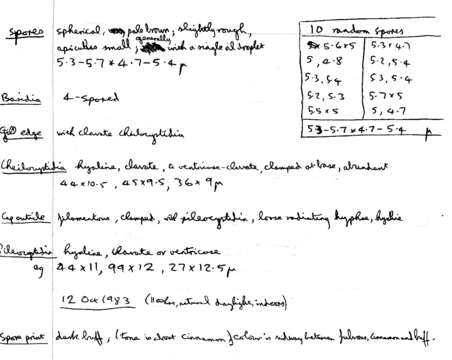 spores spherical, pale brown, slightly rough,
apiculus small, generally with a single oil droplet
5·3-5·7 × 4·7-5·4 µ
10 random spores
5·6×5 5·3×4·7
5, 4·8 5·2, 5·4
5·3, 5·4 5·3, 5·4
5·2, 5·3 5·7×5
5·5×5 5, 4·7
5·3-5·7 × 4·7-5·4 µ
Basidia 4-spored
Gill edge with clavate cheilocystidia
Cheilocystidia hyaline, clavate, to ventricose-clavate, clamped at base, abundant
44×10·5, 45×9·5, 36×9µ
Cap cuticle filamentous, clamped, with pileocystidia, loose radiating hyphae, hyaline
Pileocystidia hyaline, clavate or ventricose
eg 44×11, 44×12, 27×12·5µ
12 Oct 1983 (11 o'clock, natural daylight, indoors)
Spore print dark buff, (tone is about cinnamon) colour is midway between fulvous, cinnamon and buff.